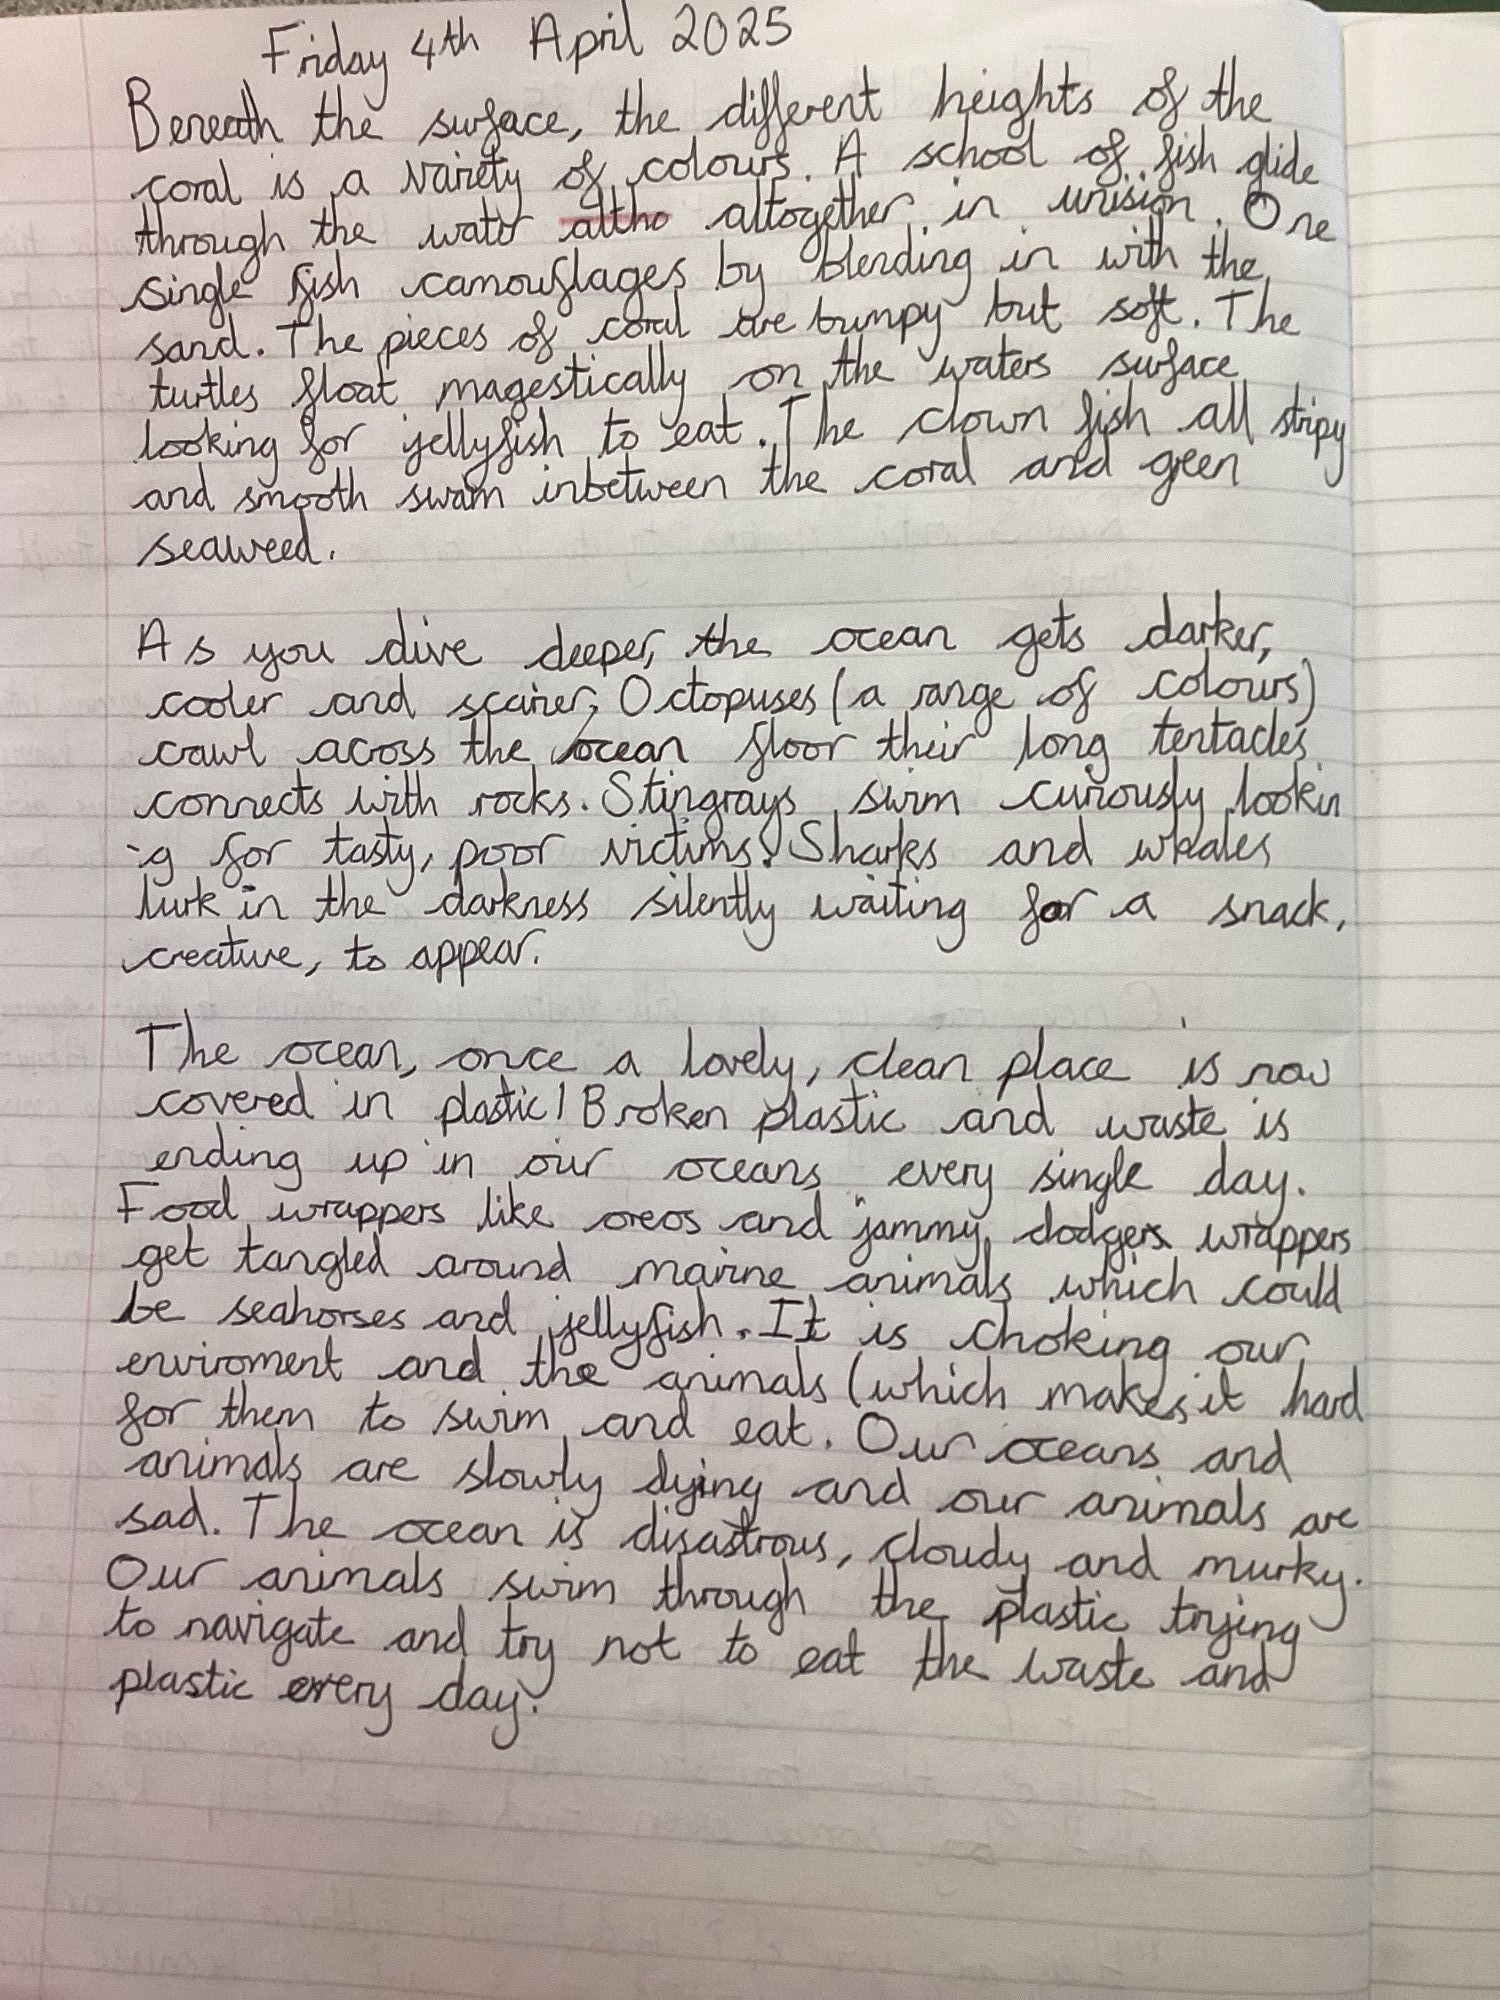 Friday 4th April 2025
Beneath the surface, the different heights of the
coral is a variety of colours. A school of fish glide
through the water altho altogether in unision. One
single fish camouflages by blending in with the
sand. The pieces of coral are bumpy but soft. The
turtles float magestically on the waters surface
looking for jellyfish to eat. The clown fish all stripy
and smooth swam inbetween the coral and green
seaweed.
As you dive deeper, the ocean gets darker,
cooler and scarier, Octopuses (a range of colours)
crawl across the ocean floor their long tentacles
connects with rocks. Stingrays swim curiously lookin
-g for tasty, poor victims. Sharks and whales
lurk in the darkness silently waiting for a snack,
creature, to appear.
The ocean, once a lovely, clean place is now
covered in plastic! Broken plastic and waste is
ending up in our oceans every single day.
Food wrappers like oreos and jammy dodgers wrappers
get tangled around marine animals which could
be seahorses and jellyfish. It is choking our
enviroment and the animals (which makes it hard
for them to swim and eat. Our oceans and
animals are slowly dying and our animals are
sad. The ocean is disastrous, cloudy and murky.
Our animals swim through the plastic trying
to navigate and try not to eat the waste and
plastic every day.